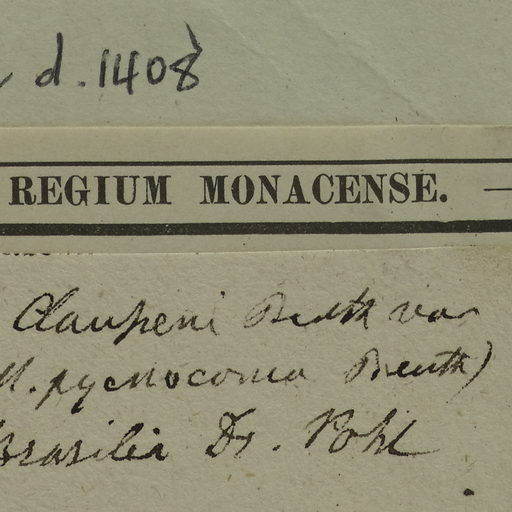 d. 1408
REGIUM MONACENSE.
Claupeni Benth var
M. pycnocoma Benth)
Brasilia Dr. Pohl